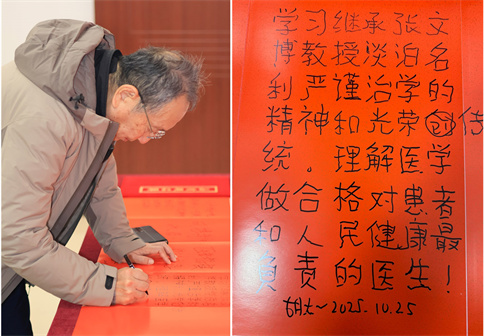 学习继承张文
博教授淡泊名
利严谨治学的
精神和光荣传
统。理解医学
做合格对患者
和人民健康最
负责的医生！
胡大一 2025.10.25